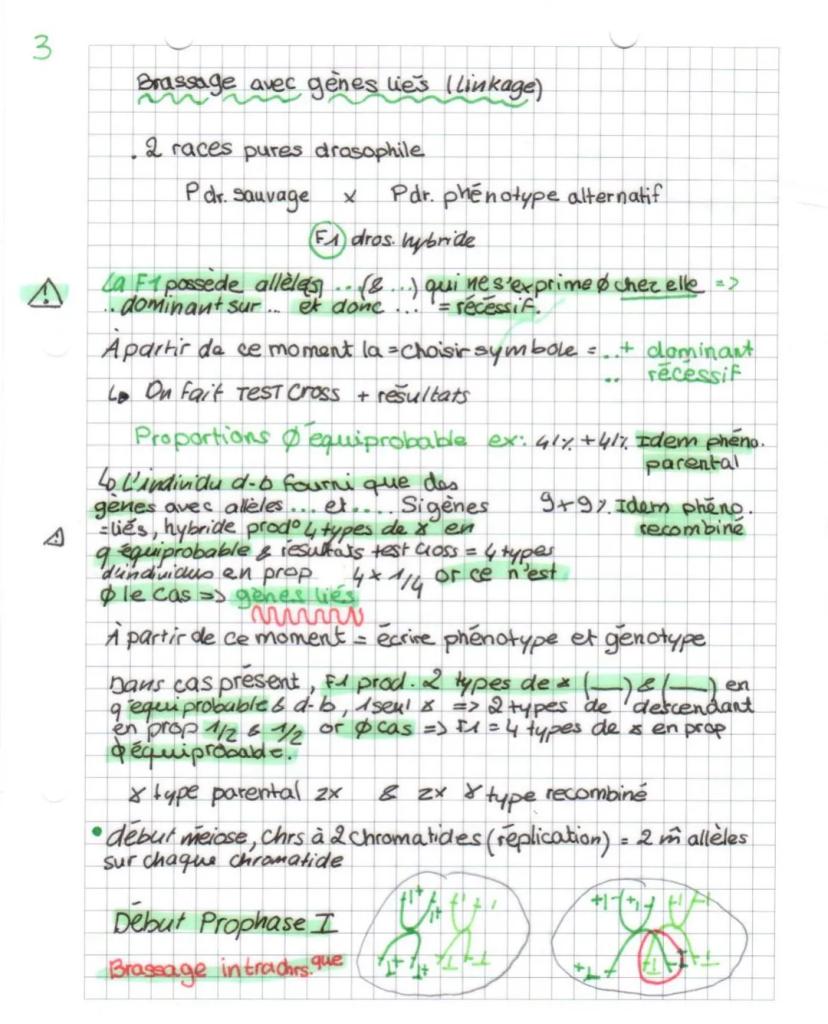 3
Brassage avec gènes liés (linkage)
. 2 races pures drosophile
P dr. sauvage x P dr. phénotype alternatif
F1 dros. hybride
La F1 possède allèles ... (& ...) qui ne s'exprime ∅ chez elle =>
.. dominant sur ... et donc ... = récéssif.
À partir de ce moment la = choisir symbole = ..+ dominant
.. récéssif
↳ On fait TEST CROSS + résultats
Proportions ∅ équiprobable ex: 41% + 41% Idem phéno.
parental
↳ L'individu d-b fourni que des
gènes avec allèles ... et .... Si gènes 9+9% Idem phéno.
=liés, hybride prod° 4 types de ɤ en recombiné
q équiprobable & résultats test cross = 4 types
d'individus en prop 4 x 1/4 or ce n'est
∅ le cas => gènes liés
À partir de ce moment = écrire phénotype et génotype
Dans cas présent, F1 prod. 2 types de ɤ (__) & (__) en
q équiprobable & d-b, 1 seul ɤ => 2 types de descendant
en prop 1/2 & 1/2 or ∅ cas => F1 = 4 types de ɤ en prop
∅ équiprobable.
ɤ type parental 2x & 2x ɤ type recombiné
• début méiose, chrs à 2 chromatides (réplication) = 2 m̂ allèles
sur chaque chromatide
Début Prophase I
Brassage intrachrs.que